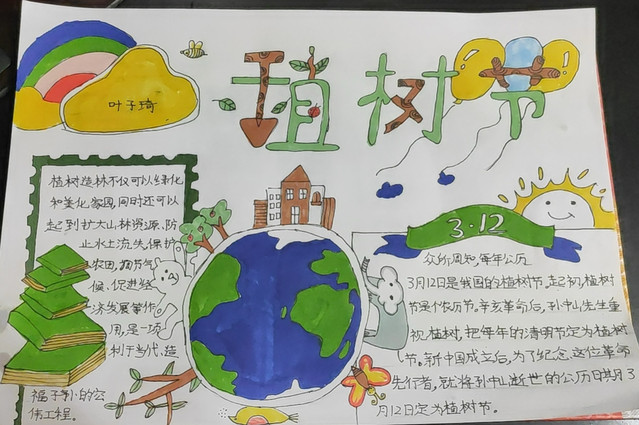 叶子琦
植树节
植树造林不仅可以绿化
和美化家园,同时还可以
起到扩大山林资源、防
止水土流失、保护
农田、调节气
候、促进经
济发展等作
用,是一项
利于当代、造
福子孙的宏
伟工程。
3.12
众所周知,每年公历
3月12日是我国的植树节。起初,植树
节是个农历节。辛亥革命后,孙中山先生重
视植树,把每年的清明节定为植树
节。新中国成立后,为了纪念这位革命
先行者,就将孙中山逝世的公历日期3
月12日定为植树节。